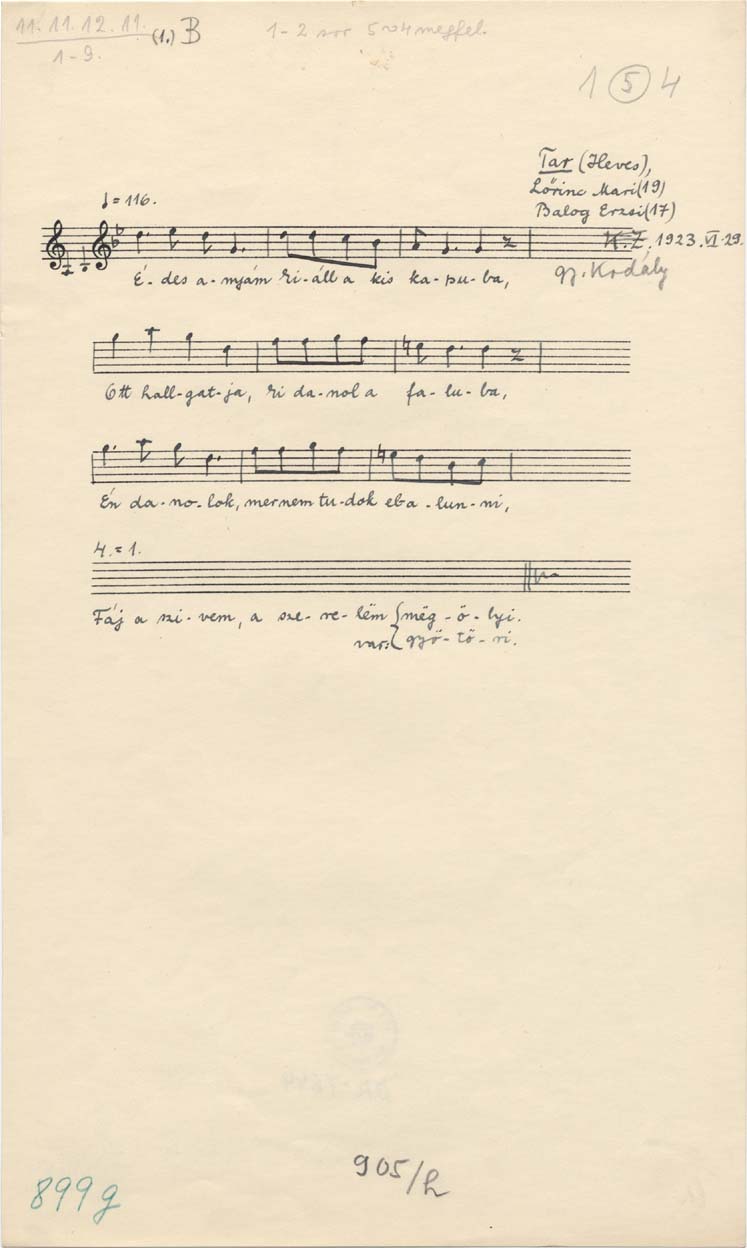 11. 11. 12. 11. (1.) B 1-2 sor 5 ~ 4 megfel.
1-9.
1 5 4
Tar (Heves),
Lőrinc Mari (19)
Balog Erzsi (17)
♩ = 116.
K. Z. 1923. VI. 29.
É- des a- nyám ki-áll a kis ka- pu- ba,
gy. Kodály
Ott hall-gat-ja, ki da-nol a fa- lu- ba,
Én da- no- lok, mer nem tu-dok el a - lun- ni,
4. = 1.
Fáj a szi- vem, a sze- re- lëm mëg - ö - lyi.
var: gyö- tö - ri.
905/h
899g